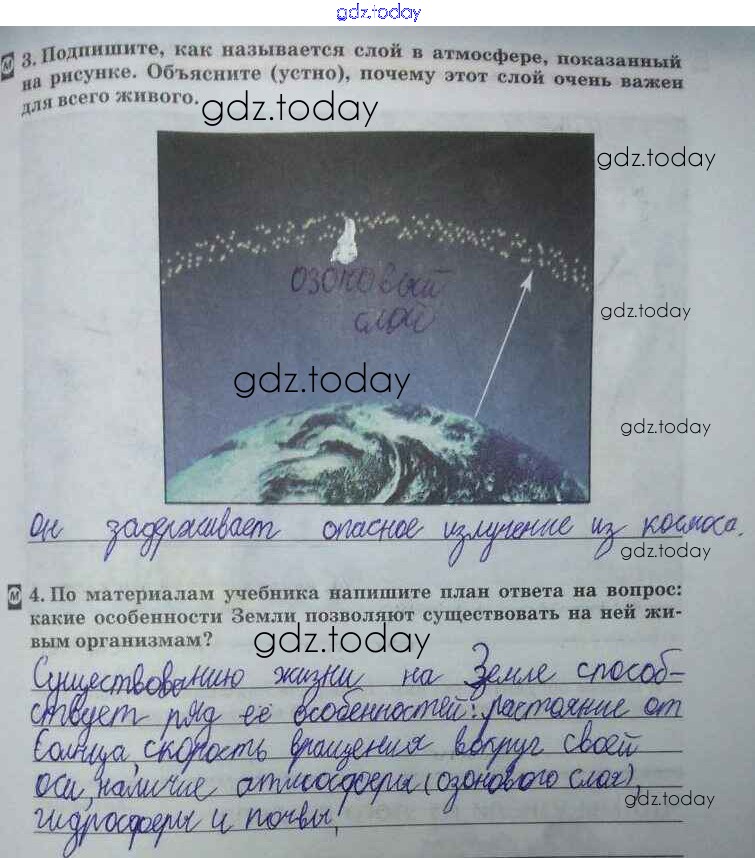 gdz.today
3. Подпишите, как называется слой в атмосфере, показанный
на рисунке. Объясните (устно), почему этот слой очень важен
для всего живого.
gdz.today
gdz.today
озоновый
слой
gdz.today
gdz.today
gdz.today
Он задерживает опасное излучение из космоса.
gdz.today
4. По материалам учебника напишите план ответа на вопрос:
какие особенности Земли позволяют существовать на ней жи-
вым организмам?
gdz.today
Существованию жизни на Земле способ-
ствует ряд её особенностей: растояние от
Солнца, скорость вращения вокруг своей
оси, наличие атмосферы (озонового слоя),
gdz.today
гидросферы и почвы.